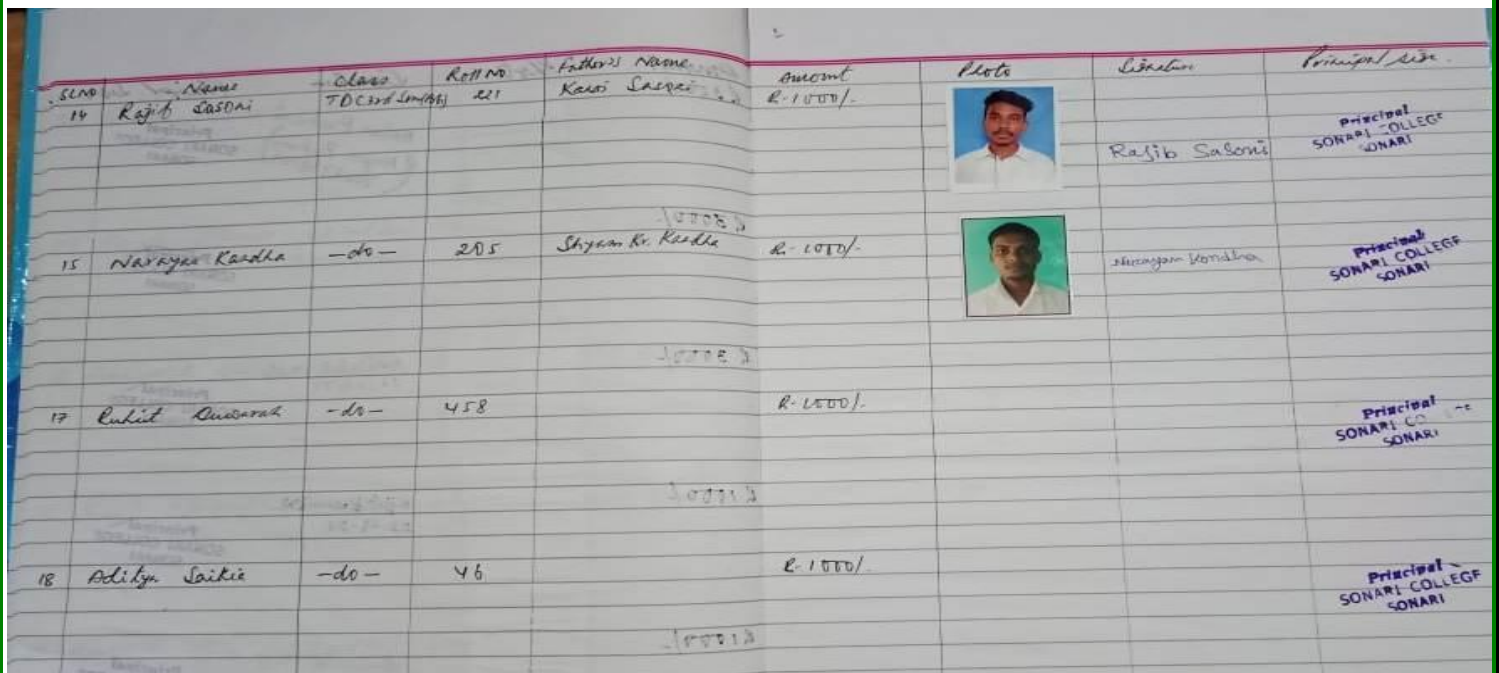 SLNO Name Class Roll No Father's Name Amount Photo Signature Principal sign.
14 Rajib Sasoni TDC 3rd Sem 221 R-1000/-
Rajib Sasoni
Principal
SONARI COLLEGE
SONARI
15 Narayan Kandha -do- 205 Shyam Kr. Kandha R-1000/-
Narayan Kondha
Principal
SONARI COLLEGE
SONARI
17 Ruhit Duwarah -do- 458 R-1000/-
Principal
SONARI CO
SONARI
18 Aditya Saikia -do- 46 R-1000/-
Principal
SONARI COLLEGE
SONARI